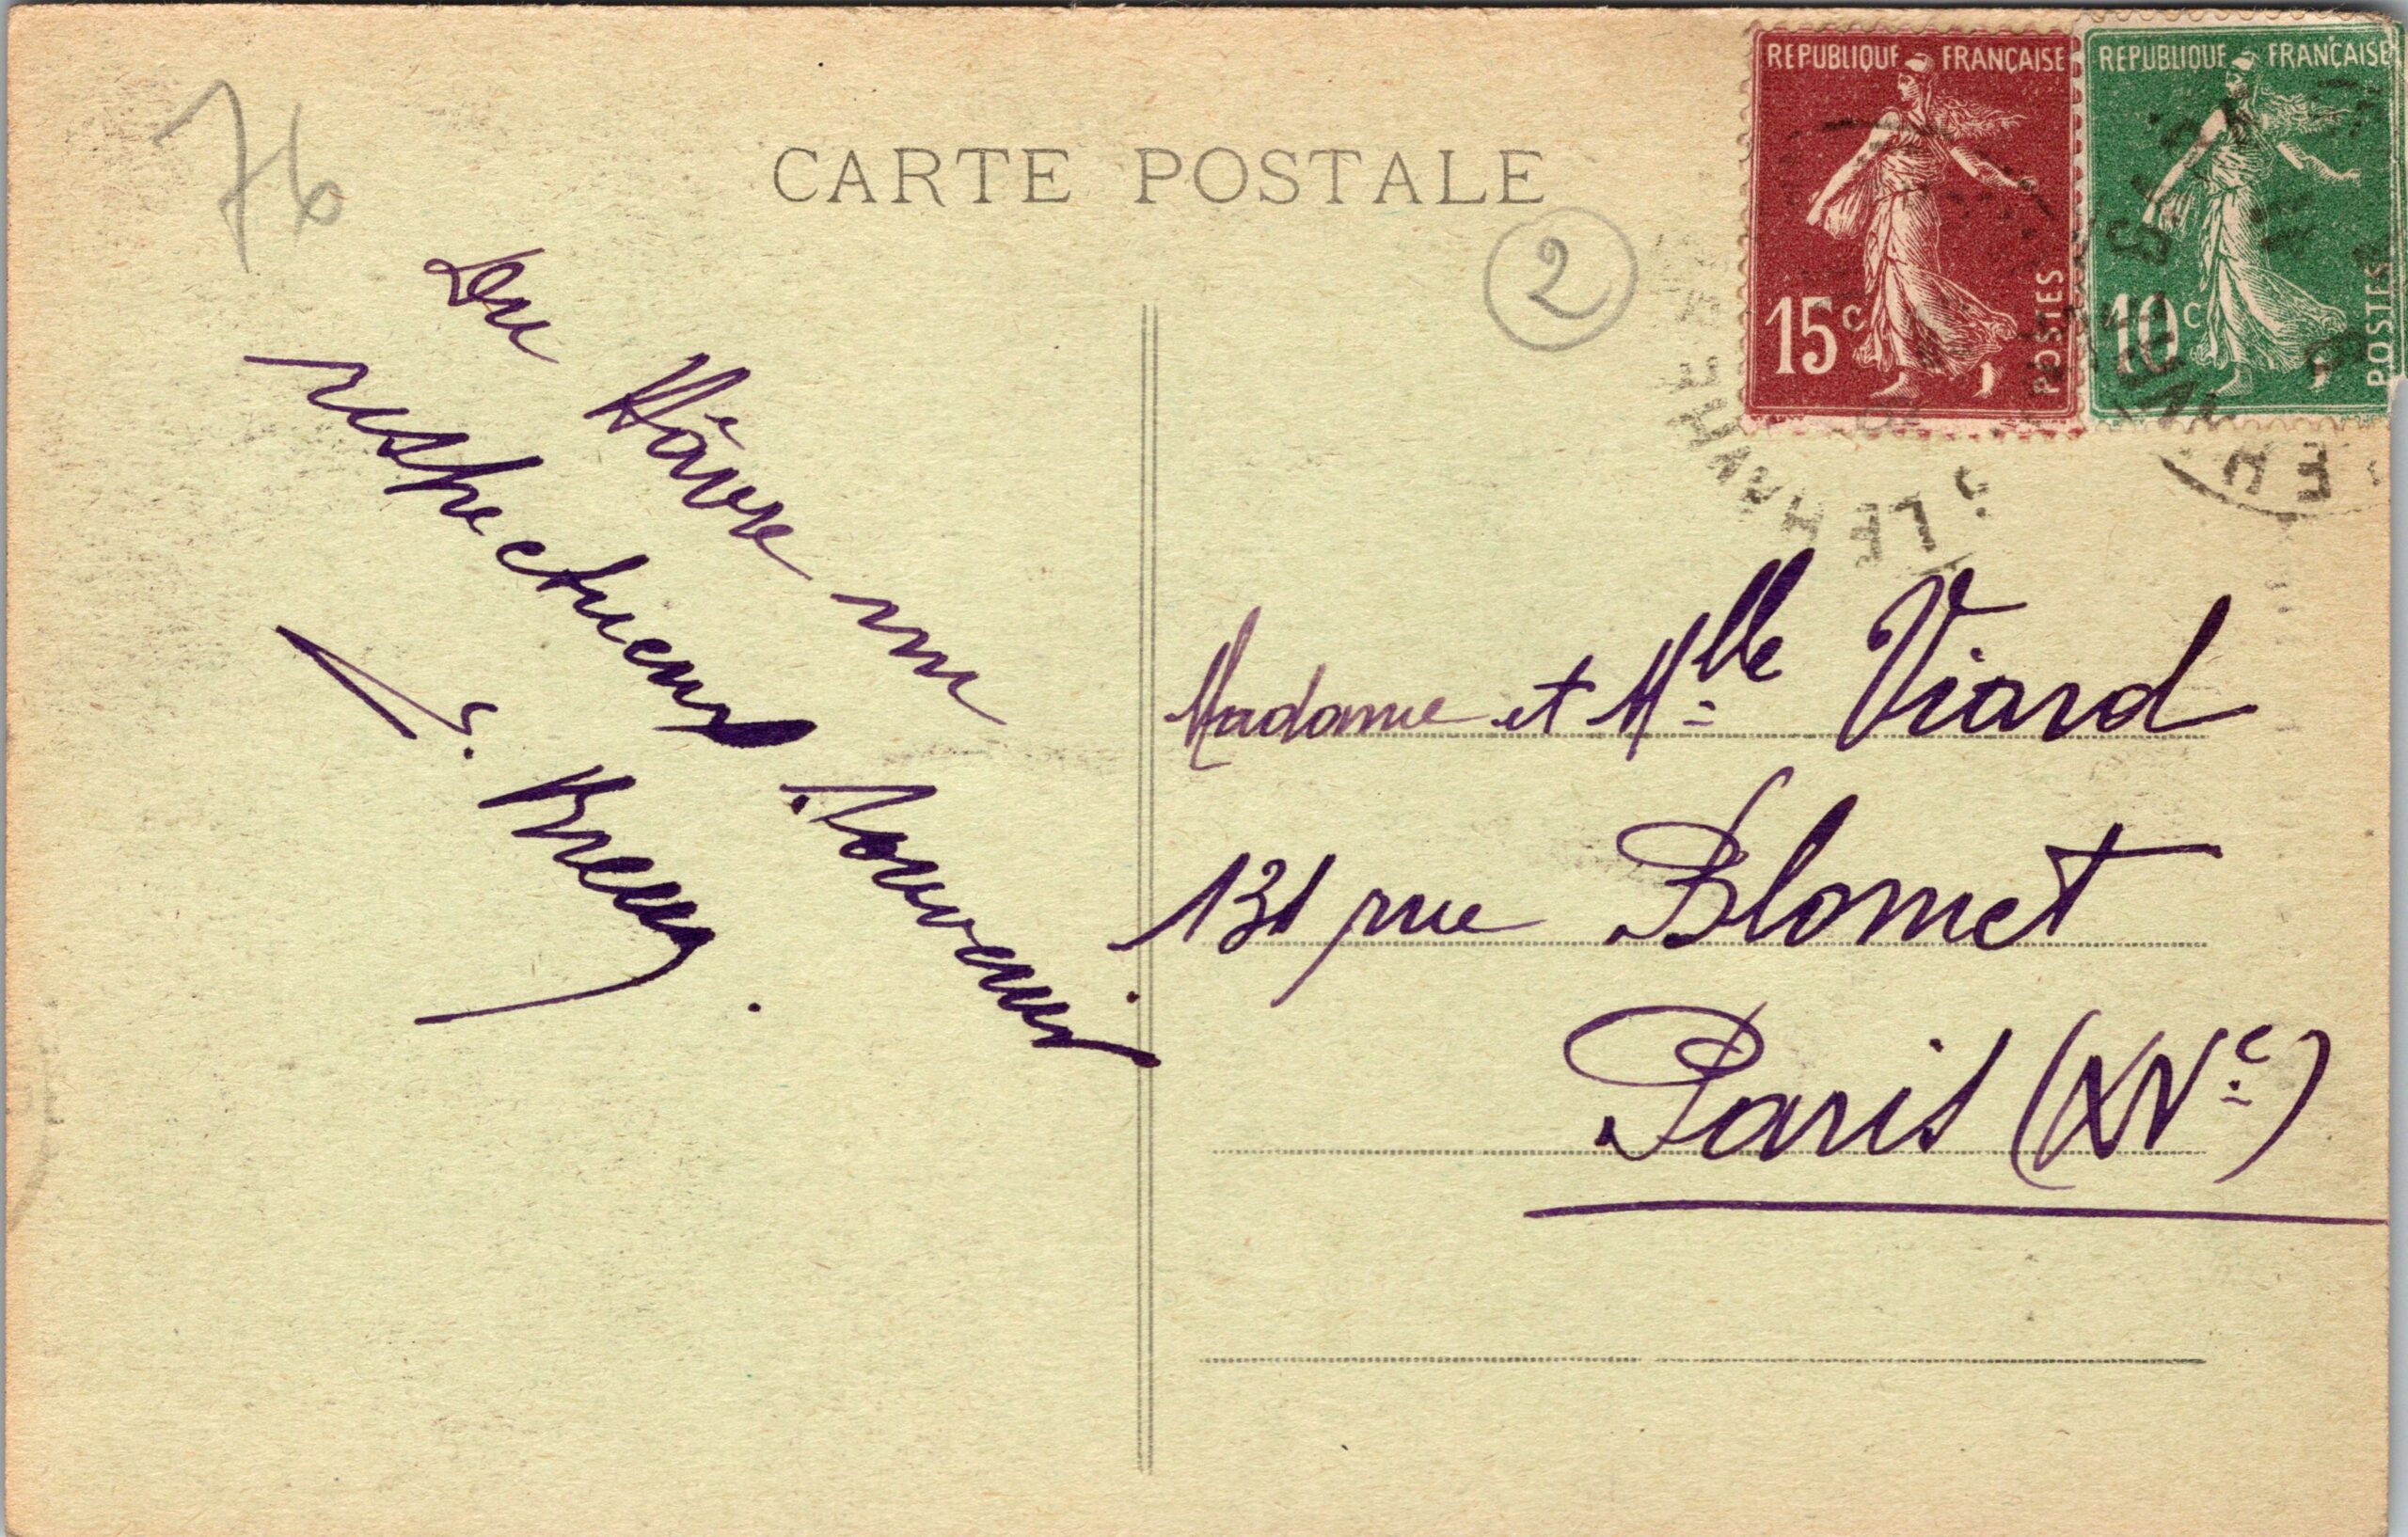 76
CARTE POSTALE
2
REPUBLIQUE FRANÇAISE
15c
POSTES
REPUBLIQUE FRANÇAISE
10c
POSTES
LE HAVRE
Du Hâvre un
respectueux souvenir
Madame et Mlle Viard
131 rue Blomet
Paris (XVe)